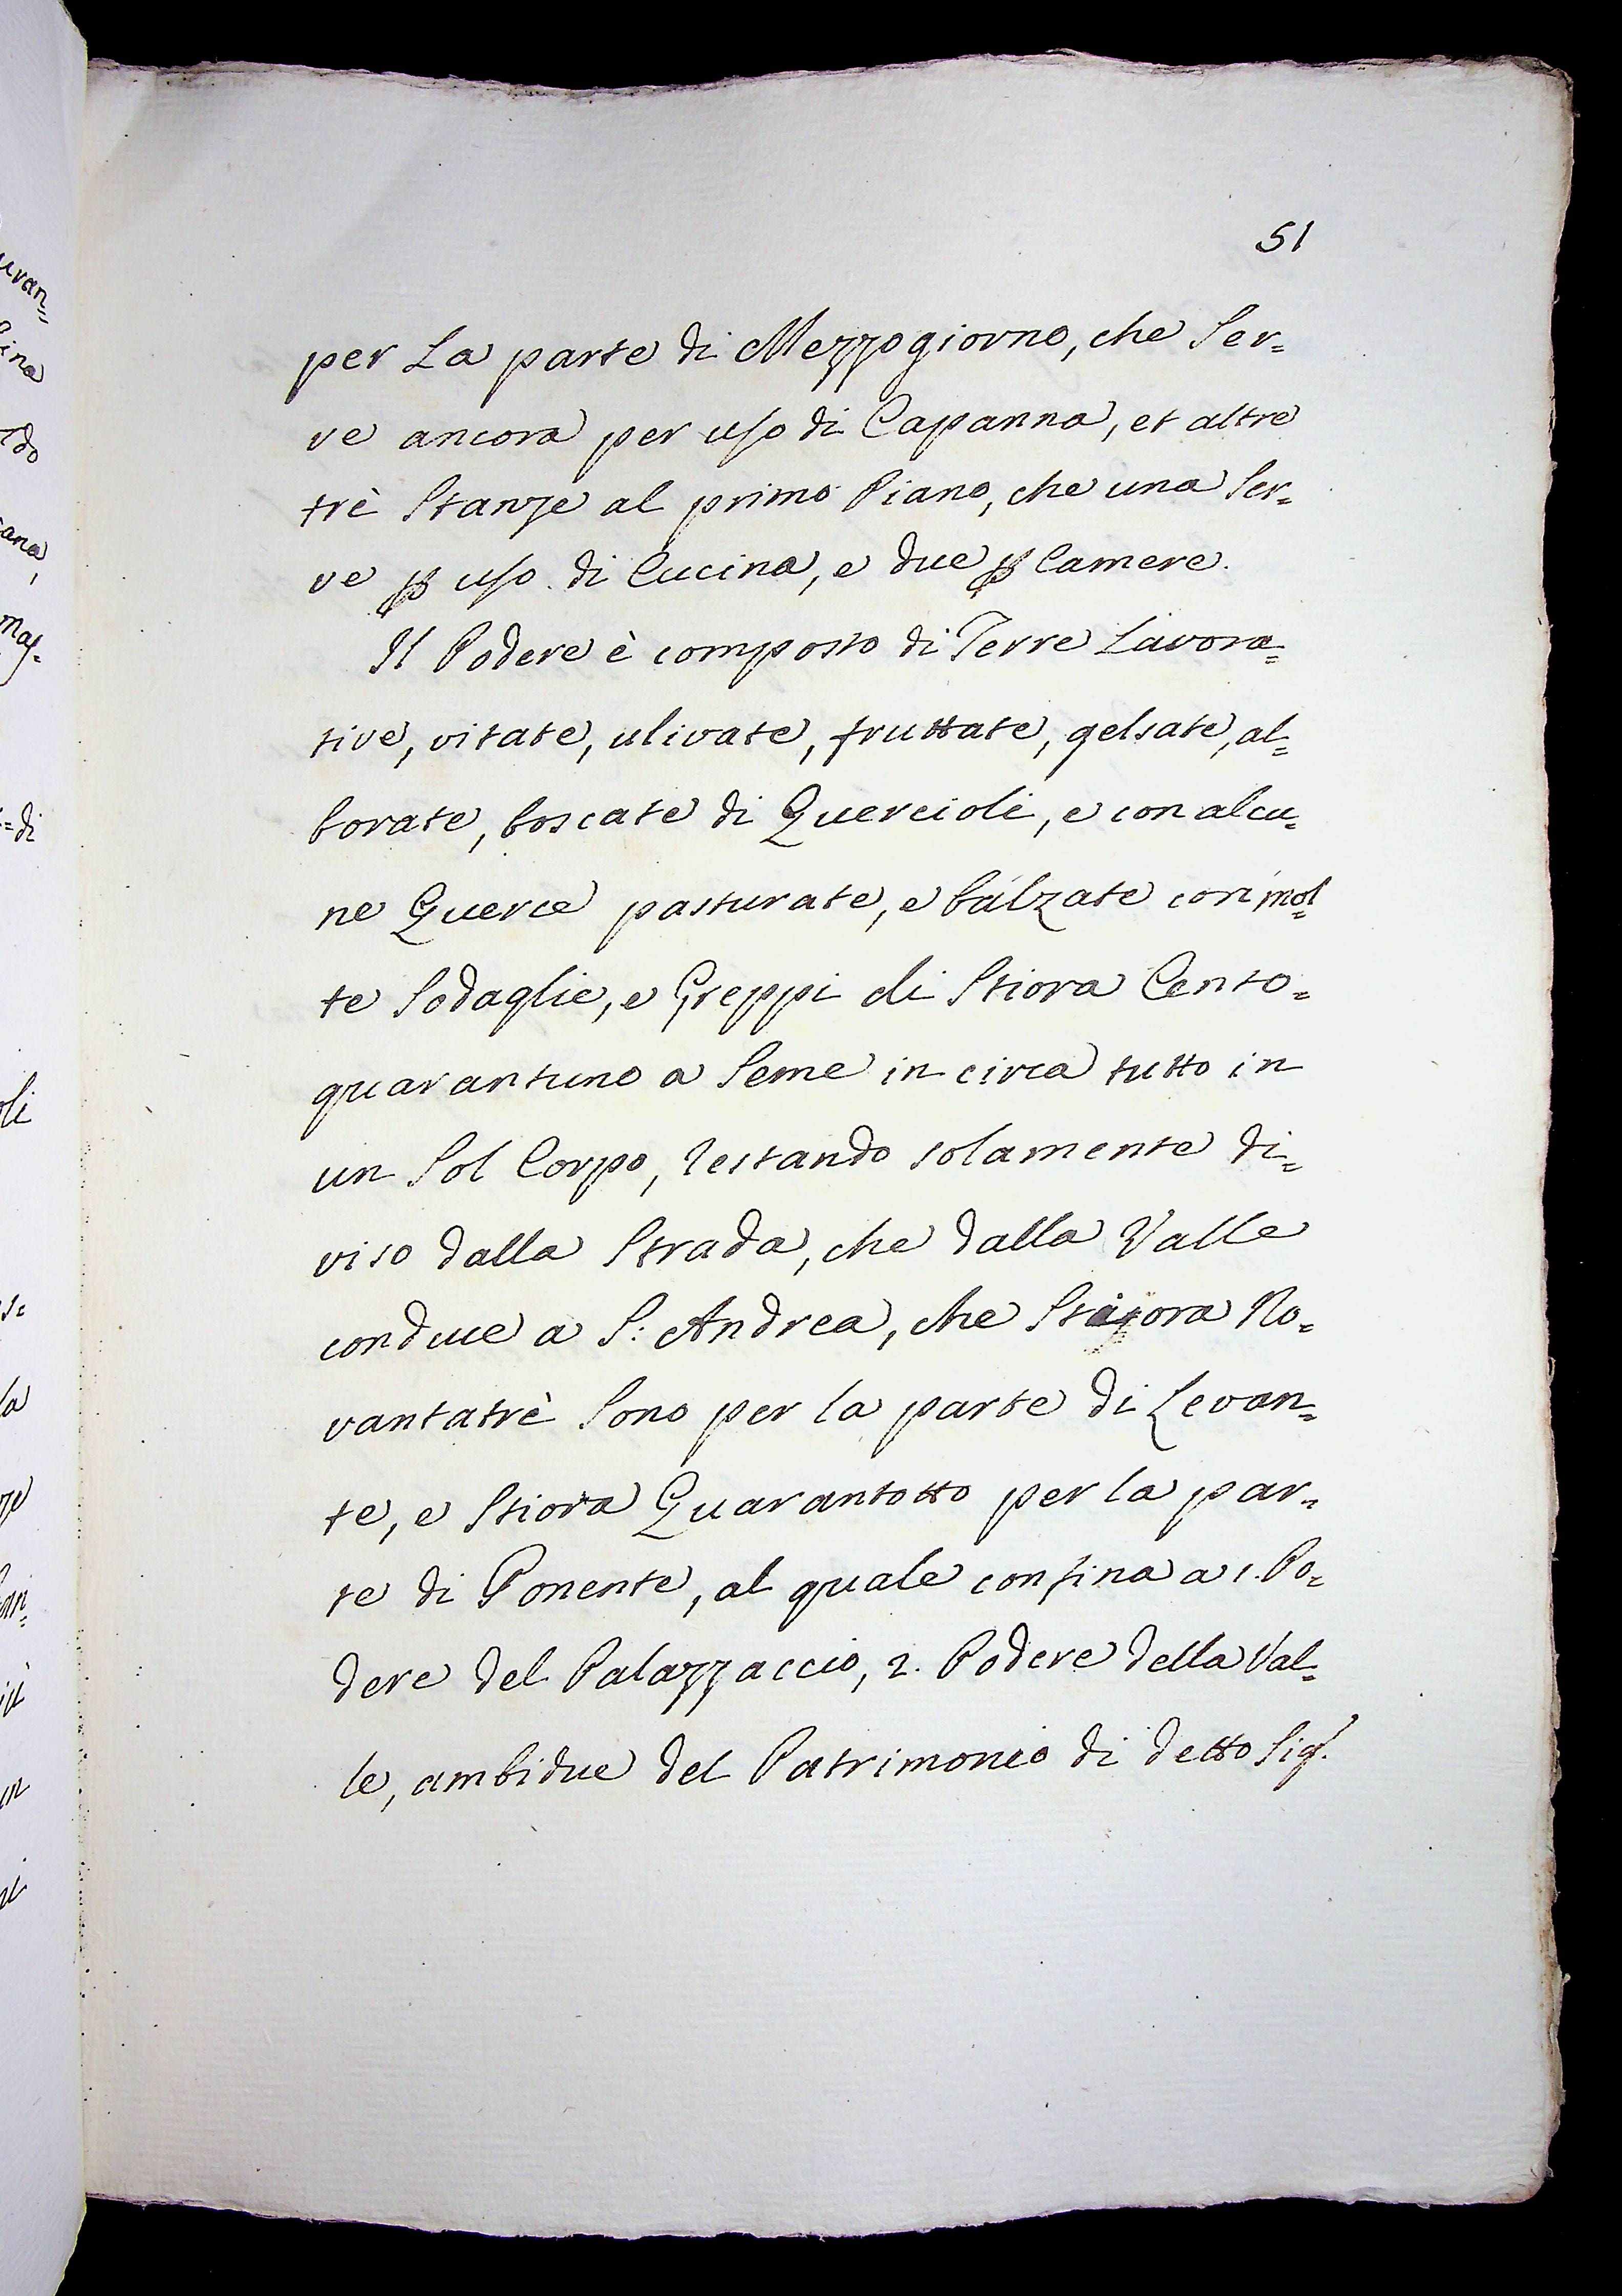 51
per La parte di Mezzogiorno, che Ser=
ve ancora per uso di Capanna, et altre
trè Stanze al primo Piano, che una Ser=
ve ꝑ uso di Cucina, e due ꝑ Camere.
Il Podere è composto di Terre Lavora=
tive, vitate, ulivate, fruttate, gelsate, al=
borate, boscate di Quercioli, e con alcu=
ne Querce pasturate, e balzate con mol=
te Sodaglie, e Greppi di Stiora Cento=
quarantuno a Seme in circa tutto in
un Sol Corpo, restando solamente di=
viso dalla Strada, che dalla Valle
conduce a S: Andrea, che Stiora No=
vantatrè Sono per la parte di Levan=
te, e Stiora Quarantotto per la par=
te di Ponente, al quale confina a 1. Po=
dere del Palazzaccio, 2. Podere della Val=
le, ambidue del Patrimonio di detto Sig.r